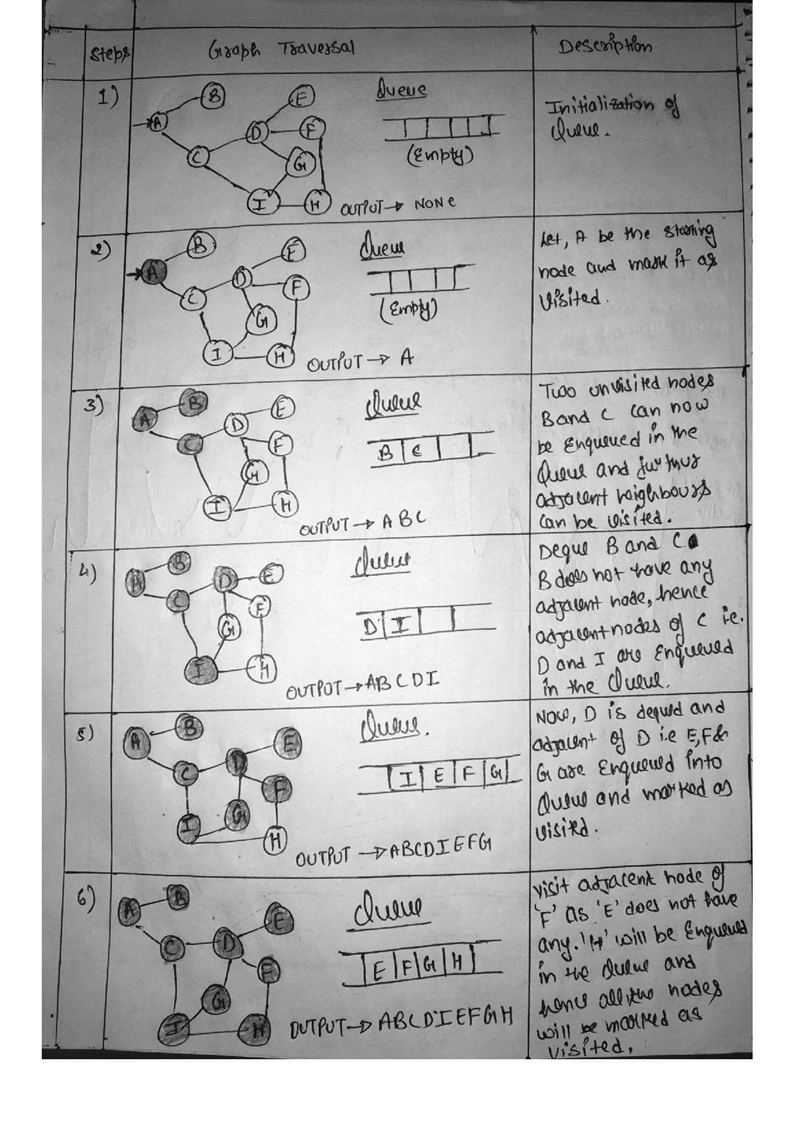 Steps
Graph Traversal
Description
1)
A
B
C
D
E
F
G
H
I
Queue
(Empty)
OUTPUT → NONE
Initialization of
Queue.
2)
A
B
C
D
E
F
G
H
I
Queue
(Empty)
OUTPUT → A
Let, A be the starting
node and mark it as
visited.
3)
A
B
C
D
E
F
G
H
I
Queue
B C
OUTPUT → A B C
Two unvisited nodes
B and C can now
be Enqueued in the
Queue and
adjacent neighbours
can be visited.
4)
A
B
C
D
E
F
G
H
I
Queue
D I
OUTPUT → A B C D I
Deque B and C
B does not have any
adjacent node, hence
adjacent nodes of C i.e.
D and I are Enqueued
in the Queue.
5)
A
B
C
D
E
F
G
H
I
Queue.
I E F G
OUTPUT → A B C D I E F G
Now, D is dequed and
adjacent of D i.e E, F &
G are Enqueued into
Queue and marked as
visited.
6)
A
B
C
D
E
F
G
H
I
Queue
E F G H
OUTPUT → A B C D I E F G H
Visit adjacent node of
'F' as 'E' does not have
any. 'H' will be Enqueued
in the Queue and
hence all the nodes
will be marked as
visited.